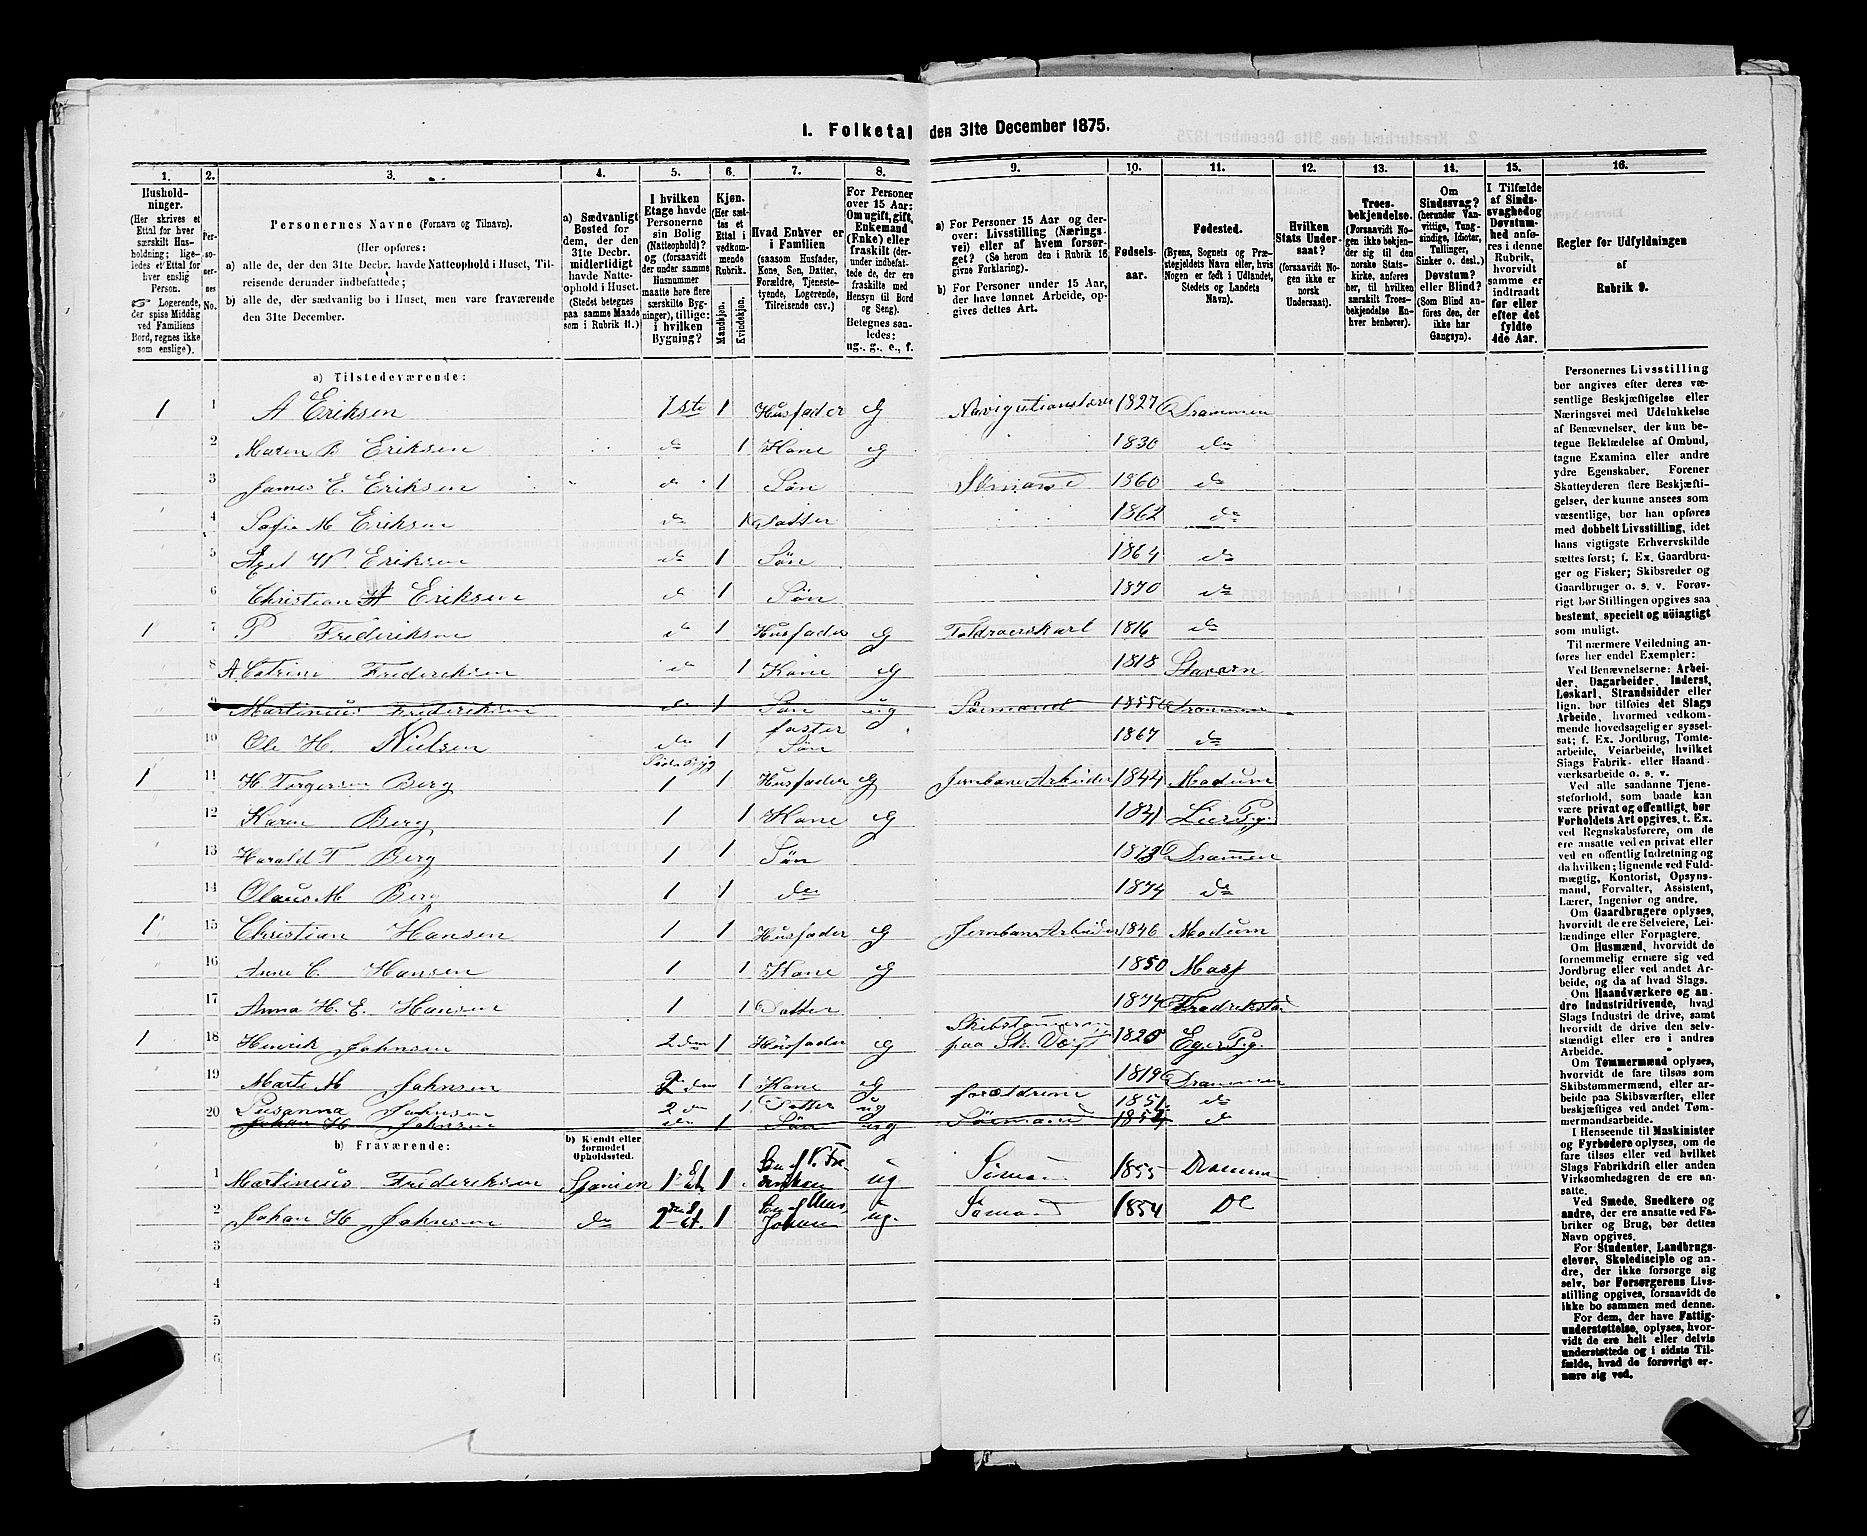 1. Folketal den 31te December 1875.
1. 2. 3. 4. 5. 6. 7. 8. 9. 10. 11. 12. 13. 14. 15. 16.
Hushold-
ninger.
(Her skrives et
Ettal for hver
særskilt Hus-
holdning; lige-
ledes et Ettal for
hver enslig
Person.
☞ Logerende,
der spise Middag
ved Familiens
Bord, regnes ikke
som enslige).
Per-
so-
ner-
nes
No.
Personernes Navne (Fornavn og Tilnavn).
(Her opføres:
a) alle de, der den 31te Decbr. havde Natteophold i Huset, Til-
reisende derunder indbefattede;
b) alle de, der sædvanlig bo i Huset, men vare fraværende
den 31te December.
a) Sædvanligt
Bosted for
dem, der den
31te Decbr.
midlertidigt
havde Natte-
ophold i Huset.
(Stedet betegnes
paa samme Maade
som i Rubrik 11.)
I hvilken
Etage havde
Personerne
sin Bolig
(Natteophold)?
og (forsaavidt
der under samme
Husnummer
maatte høre flere
særskilte Byg-
ninger), tillige:
i hvilken
Bygning?
Kjøn.
(Her sæt-
tes et
Ettal i
vedkom-
mende
Rubrik.
Mandkjøn.
Kvindekjøn.
Hvad Enhver er
i Familien
(saasom Husfader,
Kone, Søn, Datter,
Forældre, Tjeneste-
tyende, Logerende,
Tilreisende osv.)
For Personer
over 15 Aar:
Om ugift, gift,
Enkemand
(Enke) eller
fraskilt (der-
under indbefat-
tede de, der ere
fraskilte med
Hensyn til Bord
og Seng).
Betegnes saa-
ledes:
ug., g., e., f.
a) For Personer 15 Aar og der-
over: Livsstilling (Nærings-
vei) eller af hvem forsør-
get? (Se herom den i Rubrik 16
givne Forklaring).
b) For Personer under 15 Aar,
der have lønnet Arbeide, op-
gives dettes Art.
Fødsels-
aar.
Fødested.
(Byens, Sognets og Præ-
stegjeldets Navn eller, hvis
Nogen er født i Udlandet,
Stedets og Landets
Navn).
Hvilken
Stats Under-
saat?
(forsaavidt No-
gen ikke er
norsk
Undersaat).
Troes-
bekjendelse.
(Forsaavidt Nogen
ikke bekjen-
der sig til den
norske Stats-
kirke, anføres
her, til hvilken
særskilt Troes-
bekjendelse En-
hver henhører).
Om
Sindssvag?
(herunder Van-
vittige, Tung-
sindige, Idioter,
Tullinger,
Sinker o. desl.)
Døvstum?
eller Blind?
(Som Blind an-
føres den, der
ikke har
Gangsyn).
I Tilfælde
af Sinds-
svaghed og
Døvstum-
hed anfø-
res i denne
Rubrik,
hvorvidt
samme er
indtraadt
før eller
efter det
fyldte
4de Aar.
Regler for Udfyldningen
af
Rubrik 9.
a) Tilstedeværende:
1 1 A Eriksen 1ste 1 Husfader G Navigationslærer 1827 Drammen
2 Maren B Eriksen do 1 Kone G 1830 do
3 James E. Eriksen do 1 Søn Sømand 1860 do
4 Sofie M Eriksen do 1 Datter 1862 do
5 Axel W Eriksen do 1 Søn 1864 do
6 Christian A Eriksen do 1 Søn 1870 do
1 7 P Frederiksen do 1 Husfader G Toldroerskarl 1816 do
8 A Catrine Frederiksen do 1 Kone G 1818 Stavern
9 Martinius Frederiksen do 1 Søn ug Sømand 1855 Drammen
10 Ole H. Nielsen do 1 foster Søn 1867 do
Sidebyg
1 11 H Torgersen Berg 1 1 Husfader G Jernbane Arbeider 1844 Modum
12 Karen Berg 1 1 Kone G Lier Pg.
13 Harald T Berg 1 1 Søn 1873 Drammen
14 Olaus M Berg 1 1 do 1874 do
1 15 Christian Hansen 1 1 Husfader G Jernbane Arbeider 1846 Modum
16 Anne C. Hansen 1 1 Kone G 1850 Moss
17 Anna H. E. Hansen 1 1 Datter 1874 Fredrikstad
1 18 Henrik Johnsen 2den 1 Husfader G Skibstømermand
paa Sk. Værft 1820 Eger Pg.
19 Marte M Johnsen 2den 1 Kone G 1819 Drammen
20 Susanna Johnsen 2den 1 Datter ug forældrene 1851 do
Johan H Johnsen do 1 Søn ug Sømand 1854 do
b) Fraværende:
b) Kjendt eller
formodet
Opholdssted.
1 Martinius Frederiksen Spanien 1ste Et. 1 Søn af P. Fre-
deriksen ug Sømand 1855 Drammen
2 Johan H Johnsen do 2den Et. 1 Søn af
Johnsen ug. Sømand 1854 Do
3
4
5
6
Personernes Livsstilling
bør angives efter deres væ-
sentlige Beskjæftigelse eller
Næringsvei med Udelukkelse
af Benævnelser, der kun be-
tegne Beklædelse af Ombud,
tagne Examina eller andre
ydre Egenskaber. Forener
Skatteyderen flere Beskjæfti-
gelser, der kunne ansees som
væsentlige, bør han opføres
med dobbelt Livsstilling, idet
hans vigtigste Erhvervskilde
sættes først; f. Ex. Gaardbru-
ger og Fisker; Skibsreder og
Gaardbruger o. s. v. Forøv-
rigt bør Stillingen opgives saa
bestemt, specielt og nöiagtigt
som muligt.
Til nærmere Veiledning an-
føres her endel Exempler:
Ved Benævnelserne: Arbei-
der, Dagarbeider, Inderst,
Løskarl, Strandsidder eller
lign. bør tilføies det Slags
Arbeide, hvormed vedkom-
mende hovedsagelig er syssel-
sat; f. Ex. Jordbrug, Tomte-
arbeide, Veiarbeide, hvilket
Slags Fabrik- eller Haand-
værksarbeide o. s. v.
Ved alle saadanne Tjene-
steforhold, som baade kan
være privat og offentligt, bør
Forholdets Art opgives, t. Ex.
ved Regnskabsførere, om de
ere ansatte ved en privat eller
ved en offentlig Indretning og
da hvilken; lignende ved Fuld-
mægtig, Kontorist, Opsyns-
mand, Forvalter, Assistent,
Lærer, Ingeniør og andre.
Om Gaardbrugere oplyses,
hvorvidt de ere Selveiere, Lei-
lændinge eller Forpagtere.
Om Husmænd, hvorvidt de
fornemmelig ernære sig ved
Jordbrug eller ved andet Ar-
beide, og da af hvad Slags.
Om Haandværkere og an-
dre Industridrivende, hvad
Slags Industri de drive, samt
hvorvidt de drive den selv-
stændigt eller ere i andres
Arbeide.
Om Tømmermænd oplyses,
hvorvidt de fare tilsøs som
Skibstømmermænd, eller ar-
beide paa Skibsværfter, eller
beskjæftiges ved andet Tøm-
mermandsarbeide.
I Henseende til Maskinister
og Fyrbødere oplyses, om de
fare tilsøs eller ved hvilket
Slags Fabrikdrift eller anden
Virksomhedsgren de ere an-
satte.
Ved Smede, Snedkere og
andre, der ere ansatte ved Fa-
briker og Brug, bør dettes
Navn opgives.
For Studenter, Landbrugs-
elever, Skoledisciple og an-
dre, der ikke forsørge sig
selv, bør Forsørgerens Livs-
stilling opgives, forsaavidt de
ikke bo sammen med denne.
For dem, der have Fattig-
understøttelse, oplyses, hvor-
vidt de ere helt eller delvis
understøttede og i sidste Til-
fælde, hvad de forøvrigt er-
nære sig ved.